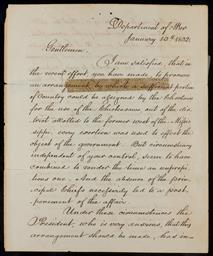 Department of War
January 10th 1832.
Gentlemen,
I am satisfied, that in
the recent effort, you have made, to procure
an arrangement by which a sufficient portion
of Country could be assigned by the Choctaws
for the use of the Chickasaws out of the dis-
trict allotted to the former west of the Missis-
sippi, every exertion was used to effect the
object of the government. But circumstances
independent of your control, seem to have
combined to render the time an unpropi-
tious one. And the absence of the prin-
cipal Chiefs necessarily led to a post-
ponement of the affair.
Under these circumstances the
President, who is very anxious that this
arrangement should be made, has in-